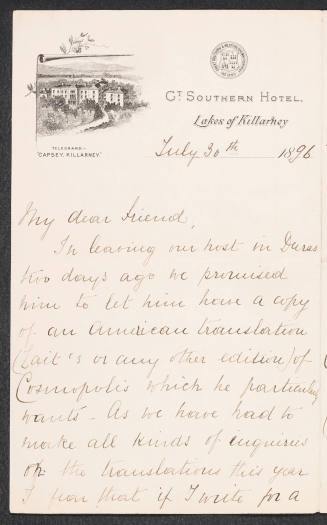 Gᵀ Southern Hotel.
Lakes of Killarney
TELEGRAMS:-
"CAPSEY, KILLARNEY."
July 30th 1896
My dear friend,
In leaving our host in Duras
two days ago we promised
him to let him have a copy
of an American translation
(Tait's or any other edition) of
Cosmopolis which he particularly
wants - As we have had to
make all kinds of inquiries
on the translations this year
I fear that if I write for a